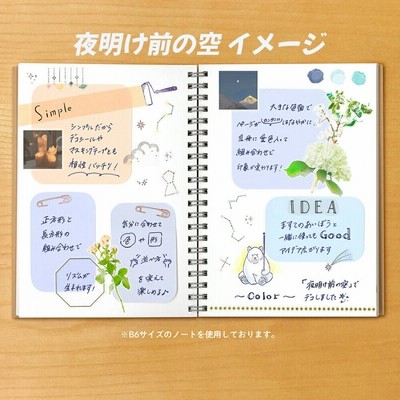 夜明け前の空 イメージ
Simple
シンプルだから
デコシールや
マスキングテープとも
相性バッチリ!
正方形と
長方形の
組み合わせで
リズムが
生まれます!
気分に合わせて
色や形
並べ方
を変えて
楽しめる♪
大きな色面で
ページが
はなやかに。
豆冊に
色入って
組み合わせで
印象が変わります!
IDEA
ますてのあいぼうと
一緒に使っても Good
アイデア広がります
~ Color ~
「夜明け前の空」で
デコしました
※B6サイズのノートを使用しております。